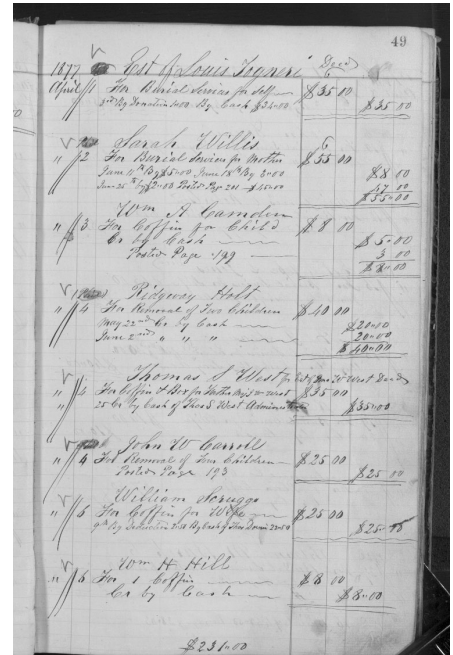 49
1877 Est of Louis Togneri Decd
April 1 For Burial Services for Self $35 00
By Donation 1.00 By Cash $34.00 $35.00
Sarah Willis
" 2 For Burial Services for Mother $55 00
June 11th By $5.00 June 18th By 3.00 $8 00
June 25th by $2.00 Posted Page 211 $45.00 47 00
$55.00
Wm A Camden
" 3 For Coffin for Child $8 00
Cr by Cash $5.00
Posted Page 199 3 00
$8.00
Ridgeway Holt
" 4 For Removal of Two Children $40 00
May 22nd Cr by Cash $20.00
June 2nd " " " 20.00
$40.00
Thomas S West for Est of West Decd
" 4 For Coffin & Box for Mother $35 00
" 25 Cr by Cash of Thos S West Administrator $35.00
John W Carroll
" 4 For Removal of Four Children $25 00
Posted Page 193 $25 00
William Scruggs
" 5 For Coffin for Wife $25 00
9th By Deduction By Cash of Thos $25
Wm H Hill
" 5 For 1 Coffin $8 00
Cr by Cash $8.00
$231.00